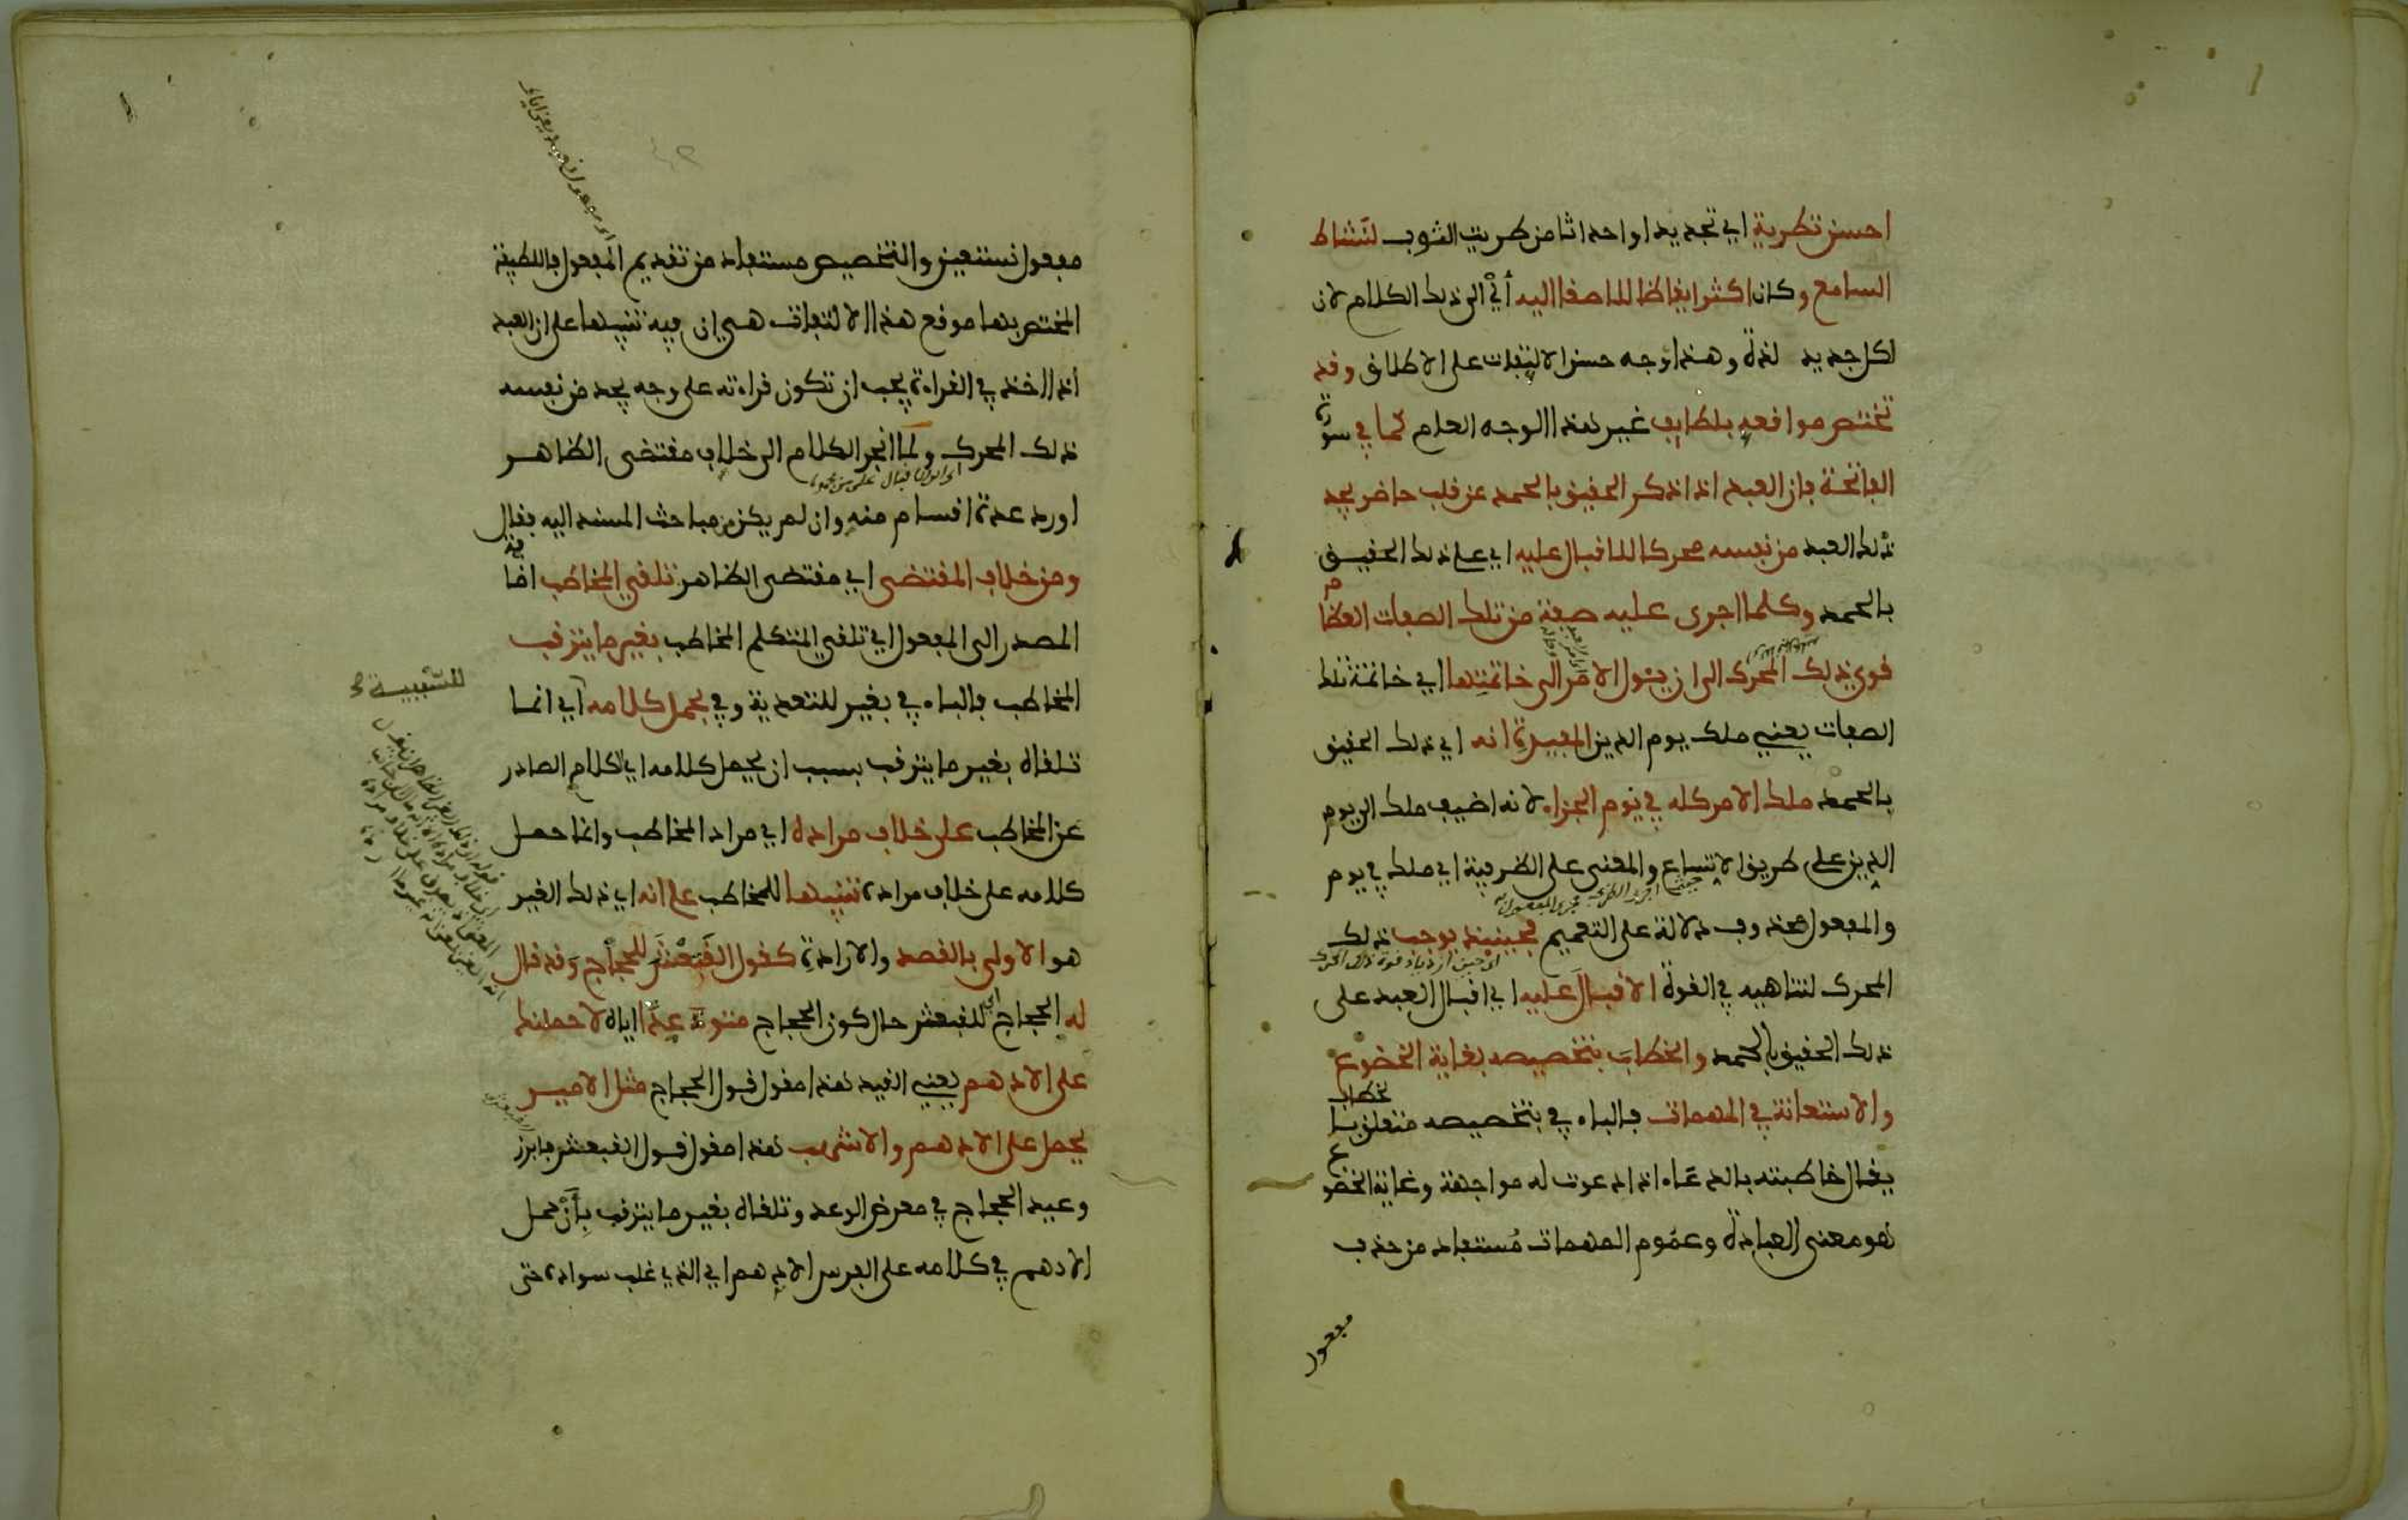 احسن تطرية اي تجديدا واحداثا من طريت الثوب لنشاط
السامع وكان اكثر ايقاظا للاصغا اليه أي الى ذلك الكلام لان
لكل جديد لذة وهذا وجه حسن الالتفات على الاطلاق وقد
تختص مواقعه بلطايف غير هذا الوجه العام كما في سورة
الفاتحة فان العبد اذا ذكر الحقيق بالحمد عن قلب حاضر يجد
ذلك العبد من نفسه محركا للاقبال عليه اي على ذلك الحقيق
بالحمد وكلما اجرى عليه صفة من تلك الصفات العظام
قوي ذلك المحرك الى ان يئول الامر الى خاتمتها اي خاتمة تلك
الصفات يعني ملك يوم الدين المفيدة انه اي ذلك الحقيق
بالحمد ملك الامر كله في يوم الجزاء لانه اضيف ملك الى يوم
الدين على طريق الاتساع والمعنى على الظرفية اي ملك في يوم
والمفعول محذوف دلالة على التعميم فحينيذ يوجب ذلك
اي حين ازدياد قوة ذلك المحرك
المحرك لتناهيه في القوة الاقبال عليه اي اقبال العبد على
ذلك الحقيق بالحمد والخطاب بتخصيصه بغاية الخضوع
والاستعانة في المهمات فالباء في بتخصيصه متعلق بالخطاب
يقال خاطبته بالدعاء اذا دعوت له مواجهة وغاية الخضوع
هو معنى العبادة وعموم المهمات مستفاد من حذف
مفعول
مفعول نستعين والتخصيص مستفاد من تقديم المفعول فاللطيفة
المختص بها موقع هذا الالتفات هي ان فيه تنبيها على ان العبد
اذا اخذ في القراءة يجب ان تكون قراءته على وجه يجد من نفسه
ذلك المحرك ولما انجر الكلام الى خلاف مقتضى الظاهر
اورد عدة اقسام منه وان لم يكن من مباحث المسند اليه فقال
ومن خلاف المقتضى اي مقتضى الظاهر تلقي المخاطب اضافة
المصدر الى المفعول اي تلقي المتكلم المخاطب بغير ما يترقب
المخاطب فالباء في بغير للتعدية وفي بحمل كلامه اي انما
للسببية
تلقاه بغير ما يترقب بسبب ان يحمل كلامه اي الكلام الصادر
عن المخاطب على خلاف مراده اي مراد المخاطب وانما حمل
كلامه على خلاف مراده تنبيها للمخاطب على انه اي ذلك الغير
هو الاولى بالقصد والارادة كقول القبعثرى للحجاج وقد قال
له الحجاج اي للقبعثرى حال كون الحجاج متوعدا اياه لاحملنك
على الادهم يعني القيد هذا مقول قول الحجاج مثل الامير
يحمل على الادهم والاشهب هذا مقول قول القبعثرى فابرز
وعيد الحجاج في معرض الوعد وتلقاه بغير ما يترقب بأن حمل
الادهم في كلامه على الفرس الادهم اي الذي غلب سواده حتى